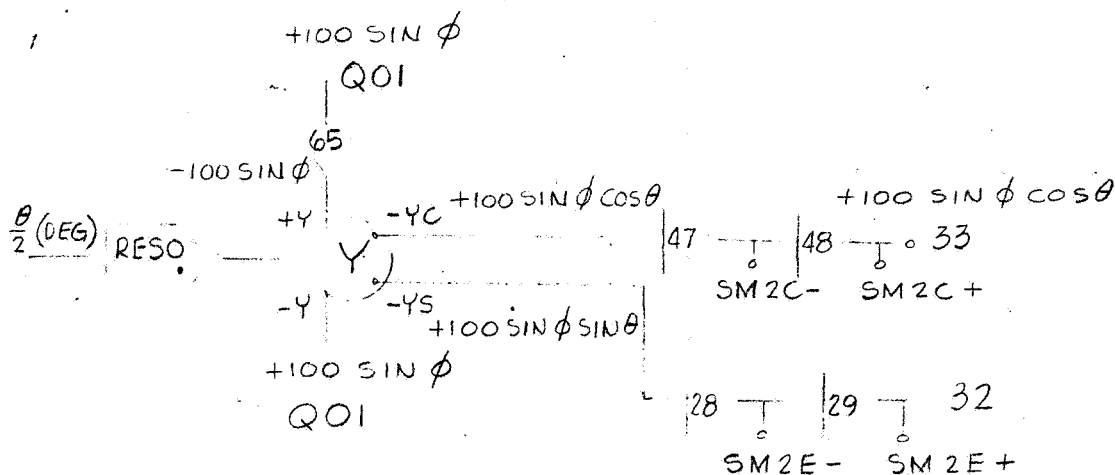 +100 SIN ϕ
Q01
65
-100 SIN ϕ
+Y
-YC
+100 SIN ϕ COS θ
+100 SIN ϕ COS θ
θ/2 (DEG)
RESO
Y
47
48
33
SM2C-
SM2C+
-Y
-YS
+100 SIN ϕ SIN θ
+100 SIN ϕ
Q01
28
29
32
SM2E-
SM2E+